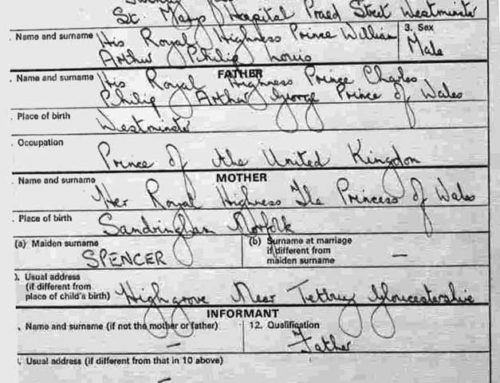 St. Mary's Hospital Praed Street Westminster
Name and surname
His Royal Highness Prince William
Arthur Philip Louis
3. Sex
Male
FATHER
Name and surname
His Royal Highness Prince Charles
Philip Arthur George Prince of Wales
Place of birth
Westminster
Occupation
Prince of the United Kingdom
MOTHER
Name and surname
Her Royal Highness The Princess of Wales
Place of birth
Sandringham Norfolk
(a) Maiden surname
SPENCER
(b) Surname at marriage
if different from
maiden surname
—
Usual address
(if different from
place of child's birth)
Highgrove Near Tetbury Gloucestershire
INFORMANT
Name and surname (if not the mother or father)
—
12. Qualification
Father
Usual address (if different from that in 10 above)
—